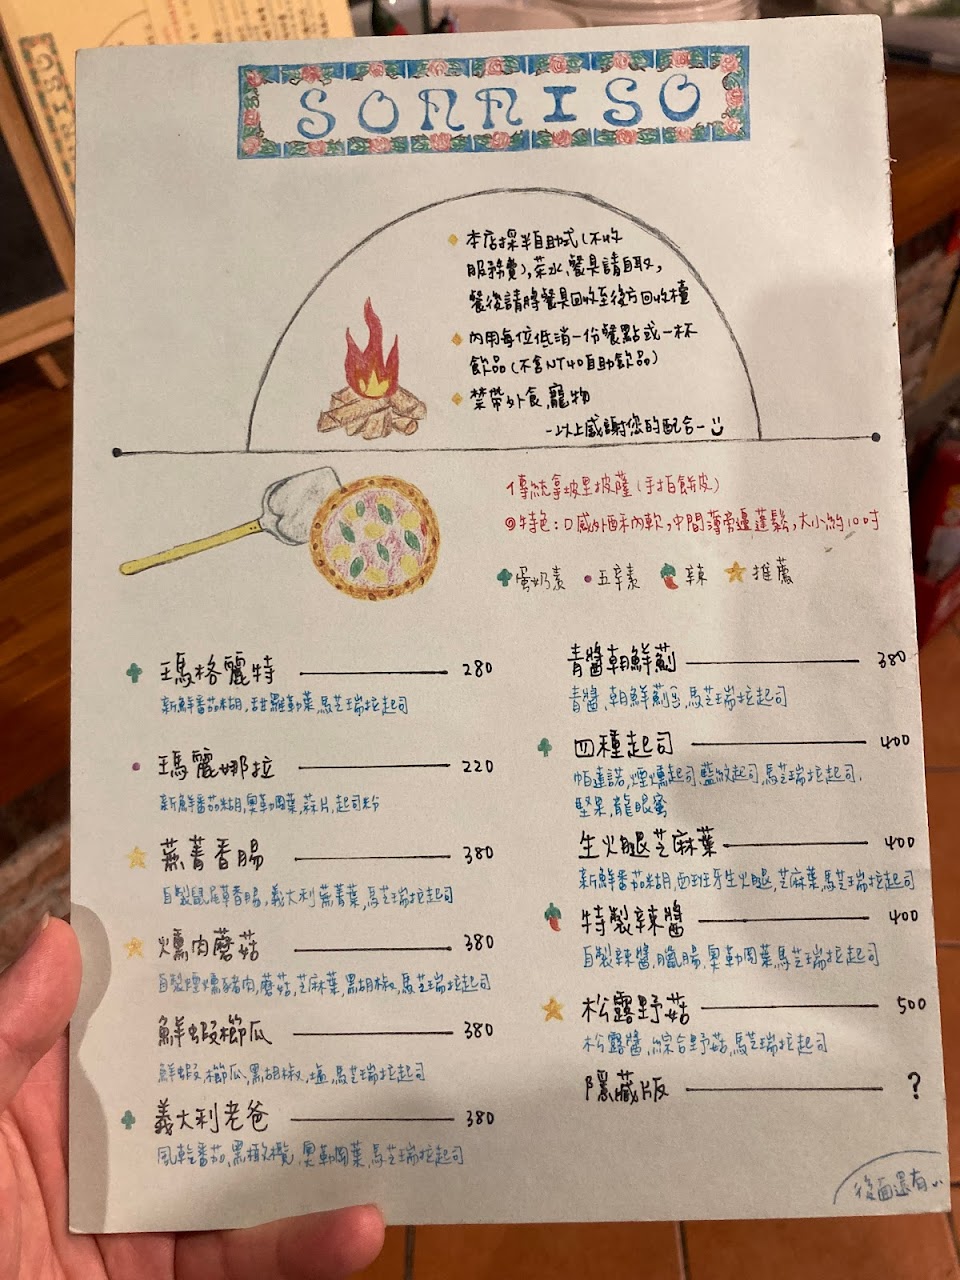 SORRISO
本店採半自助式(不收
服務費),茶水、餐具請自取,
餐後請將餐具回收至後方回收檯
內用每位低消一份餐點或一杯
飲品(不含NT40自助飲品)
禁帶外食、寵物
-以上感謝您的配合-
傳統拿坡里披薩(手拍餅皮)
特色:口感外酥內軟,中間薄旁邊蓬鬆,大小約10吋
蛋奶素 五辛素 辣 推薦
瑪格麗特 280
新鮮番茄糊,甜羅勒葉,馬芝瑞拉起司
瑪麗娜拉 220
新鮮番茄糊,奧勒岡葉,蒜片,起司粉
蕪菁香腸 380
自製鼠尾草香腸,義大利蕪菁葉,馬芝瑞拉起司
燻肉蘑菇 380
自製煙燻豬肉,蘑菇,芝麻葉,黑胡椒,馬芝瑞拉起司
鮮蝦櫛瓜 380
鮮蝦,櫛瓜,黑胡椒,鹽,馬芝瑞拉起司
義大利老爸 380
風乾番茄,黑橄欖,奧勒岡葉,馬芝瑞拉起司
青醬朝鮮薊 380
青醬,朝鮮薊,馬芝瑞拉起司
四種起司 400
帕達諾,煙燻起司,藍紋起司,馬芝瑞拉起司,
堅果,龍眼蜜
生火腿芝麻葉 400
新鮮番茄糊,西班牙生火腿,芝麻葉,馬芝瑞拉起司
特製辣醬 400
自製辣醬,臘腸,奧勒岡葉,馬芝瑞拉起司
松露野菇 500
松露醬,綜合野菇,馬芝瑞拉起司
隱藏版 ?
後面還有